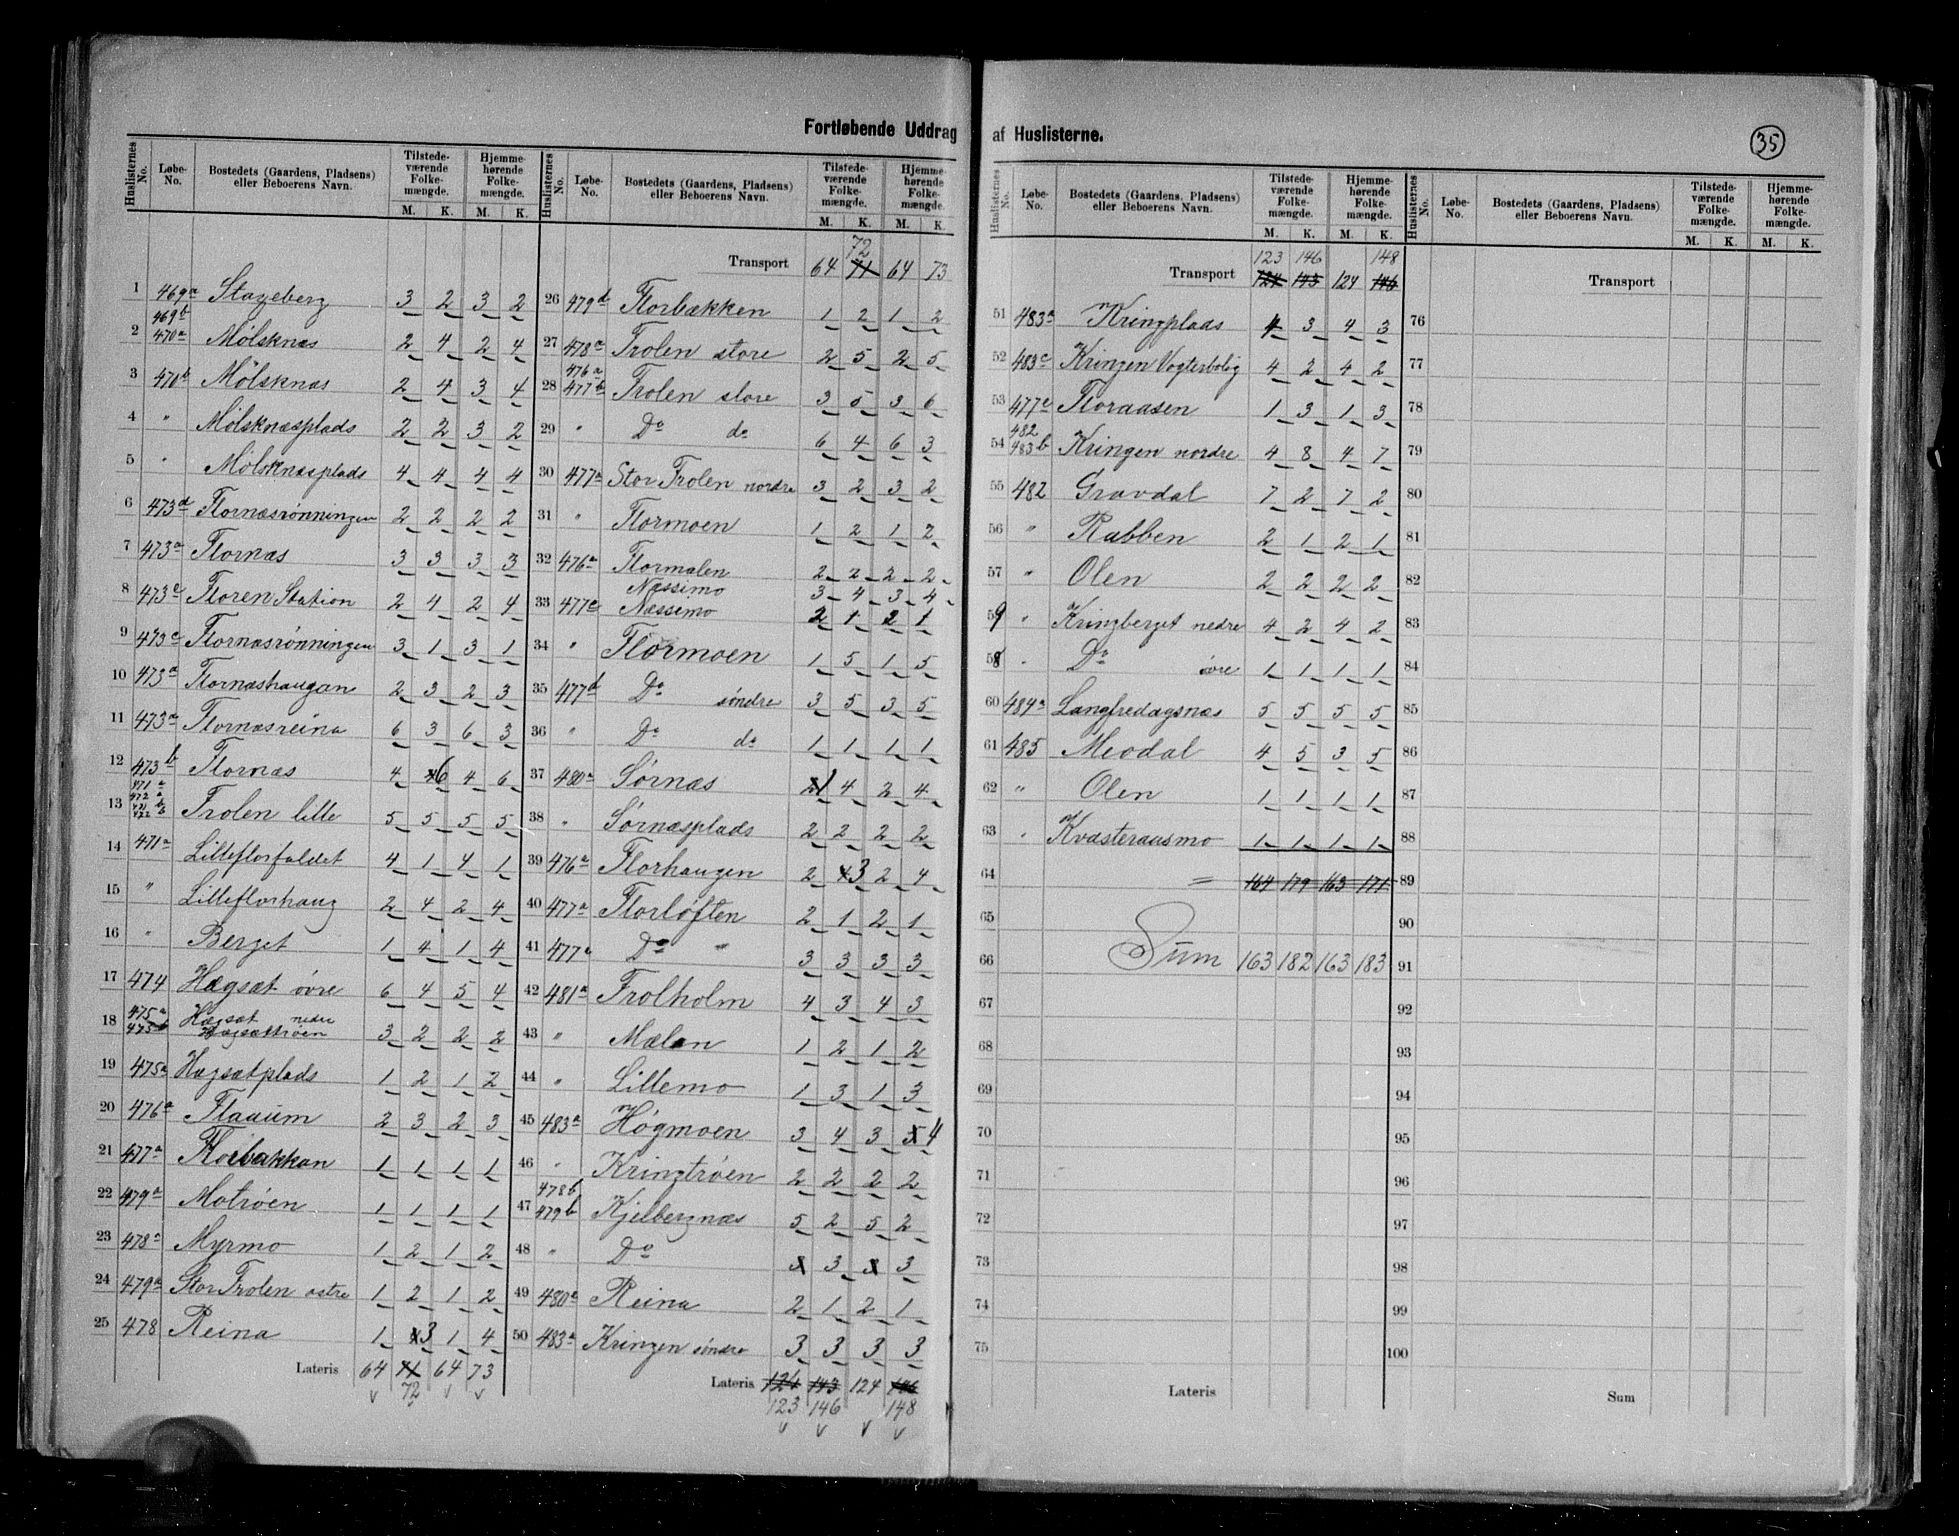 Fortløbende Uddrag af Huslisterne.
35
Huslisternes No. Løbe-No. Bostedets (Gaardens, Pladsens) eller Beboerens Navn. Tilstedeværende Folkemængde. Hjemmehørende Folkemængde.
M. K. M. K.
1 469a 469b Stageberg 3 2 3 2
2 470a Mølsknæs 2 4 2 4
3 470b Mølsknæs 2 4 3 4
4 " Mølsknæsplads 2 2 3 2
5 " Mølsknæsplads 4 4 4 4
6 473d Flornæsrønningen 2 2 2 2
7 473a Flornæs 3 3 3 3
8 473e Floren Station 2 4 2 4
9 473c Flornæsrønningen 3 1 3 1
10 473a Flornæshaugan 2 3 2 3
11 473a Flornæsreina 6 3 6 3
12 473b Flornæs 4 6 4 6
13 471a 472a 471b 472b Frolen lille 5 5 5 5
14 471a Lilleflorfaldet 4 1 4 1
15 " Lilleflorhaug 2 4 2 4
16 " Berget 1 4 1 4
17 474 Hægsæt øvre 6 4 5 4
18 475a 475b Hægsæt nedre Hægsættrøen 3 2 2 2
19 475a Hægsætplads 1 2 1 2
20 476a Flaaum 2 3 2 3
21 477a Florbakkan 1 1 1 1
22 479a Motrøen 1 1 1 1
23 478a Myrmo 1 2 1 2
24 479a Stor Frolen østre 1 2 1 2
25 478 Reina 1 3 1 4
Lateris 64 71 64 73
72
Huslisternes No. Løbe-No. Bostedets (Gaardens, Pladsens) eller Beboerens Navn. Tilstedeværende Folkemængde. Hjemmehørende Folkemængde.
M. K. M. K.
72
Transport 64 71 64 73
26 479d Florbækken 1 2 1 2
27 478a Frolen store 2 5 2 5
28 476a 477b Frolen store 3 5 3 6
29 " Do do 6 4 6 3
30 477a Stor Frolen nordre 3 2 3 2
31 " Flormoen 1 2 1 2
32 476a Flormælen 2 2 2 2
Næssimo 3 4 3 4
33 477c Næssimo 2 1 2 1
34 " Flormoen 1 5 1 5
35 477d Do søndre 3 5 3 5
36 " Do do 1 1 1 1
37 480a Sørnæs 1 4 2 4
38 " Sørnæsplads 2 2 2 2
39 476a Florhaugen 2 3 2 4
40 477a Florløften 2 1 2 1
41 477a Do " 3 3 3 3
42 481a Frolholm 4 3 4 3
43 " Mælen 1 2 1 2
44 " Lillemo 1 3 1 3
45 483a Høgmoen 3 4 3 4
46 " Kringtrøen 2 2 2 2
47 478b 479b Kjelbergnæs 5 2 5 2
48 " Do x 3 x 3
49 480a Reina 2 1 2 1
50 483a Kringen søndre 3 3 3 3
Lateris 124 143 124 146
123 146 148
Huslisternes No. Løbe-No. Bostedets (Gaardens, Pladsens) eller Beboerens Navn. Tilstedeværende Folkemængde. Hjemmehørende Folkemængde.
M. K. M. K.
123 146 148
Transport 124 143 124 146
51 483a Kringplads 4 3 4 3
52 483c Kringen Vogterbolig 4 2 4 2
53 477e Floraasen 1 3 1 3
54 482 483b Kringen nordre 4 8 4 7
55 482 Gravdal 7 2 7 2
56 " Rabben 2 1 2 1
57 " Olen 2 2 2 2
59 " Kringberget nedre 4 2 4 2
58 " Do øvre 1 1 1 1
60 484a Langfredagsnæs 5 5 5 5
61 485 Meodal 4 5 3 5
62 " Olen 1 1 1 1
63 " Kvæsteraasmo 1 1 1 1
64 = 164 179 163 171
65
66 Sum 163 182 163 183
67
68
69
70
71
72
73
74
75
Lateris
Huslisternes No. Løbe-No. Bostedets (Gaardens, Pladsens) eller Beboerens Navn. Tilstedeværende Folkemængde. Hjemmehørende Folkemængde.
M. K. M. K.
Transport
76
77
78
79
80
81
82
83
84
85
86
87
88
89
90
91
92
93
94
95
96
97
98
99
100
Sum